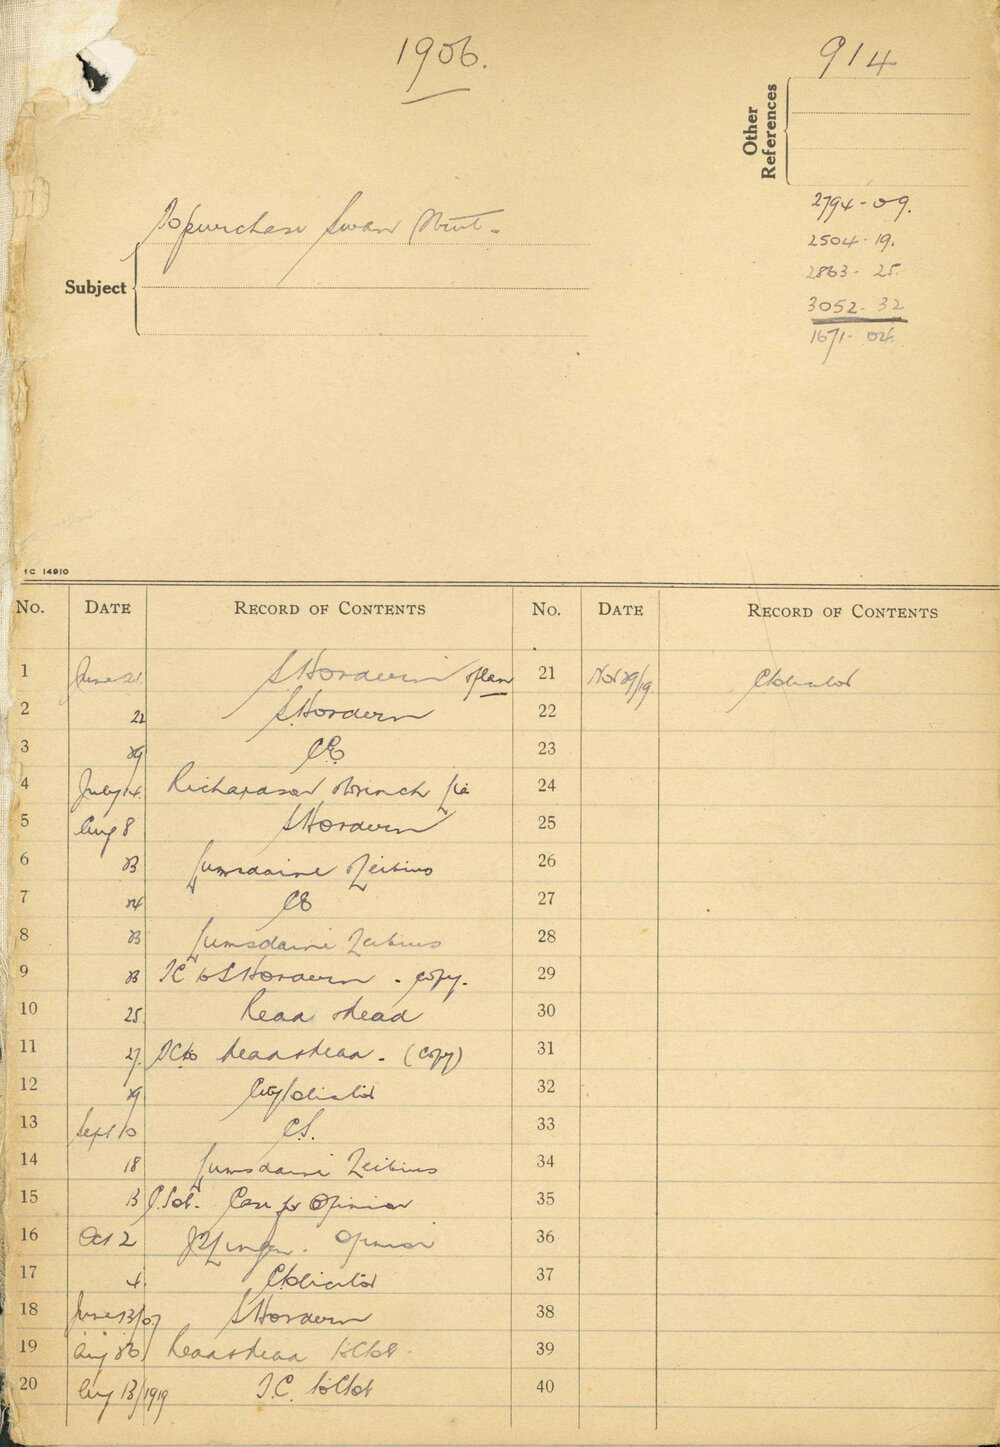 1906.
914
Other
References
2794-09.
2504-19.
2863-25.
3052-32
1671-04.
To purchase Swan
Subject
14910
No. DATE RECORD OF CONTENTS No. DATE RECORD OF CONTENTS
1 June 21 S Hordern plan 21 Nov 29/19. C Solicitor
2 22 S. Hordern 22
3 29 CE 23
4 July 14. Richardson & Wrench 24
5 Aug 8 S Hordern 25
6 23 Lumsdaine 26
7 24 27
8 23 Lumsdaine 28
9 23 TC to S Hordern - copy. 29
10 25 Read & Read 30
11 27. TC to Read & Read - (copy) 31
12 29 City Solicitor 32
13 Sept 10 C.S. 33
14 18 Lumsdaine 34
15 13 C. Sol. Case for Opinion 35
16 Oct 2 Opinion 36
17 4. C Solicitor 37
18 June 13/07 S Hordern 38
19 Aug Read & Read to C Sol. 39
20 Aug 13/1919 T.C. to C Sol 40